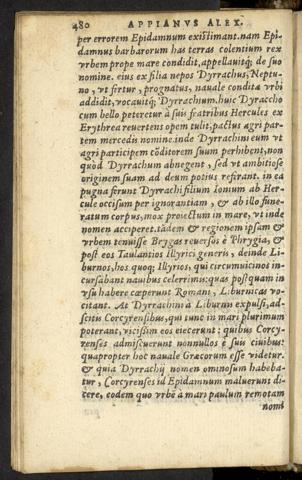 480 APPIANVS ALEX.
per errorem Epidamnum existimant. nam Epi-
damnus barbarorum has terras colentium rex
vrbem prope mare condidit, appellauitq́; de suo
nomine. eius ex filia nepos Dyrrachus, Neptu-
no, vt fertur, prognatus, nauale conditæ vrbi
addidit, vocauitq́; Dyrrachum. huic Dyraccho
cum bello peteretur à suis fratribus Hercules ex
Erythrea reuertens opem tulit, pactus agri par-
tem mercedis nomine. inde Dyrrachini eum vt
agri participem cōditorem suum perhibent, non
quòd Dyrrachum abnegent, sed vt ambitiose
originem suam ad deum potius referant. in ea
pugna ferunt Dyrrachi filium Ionium ab Her-
cule occisum per ignorantiam, & ab illo fune-
ratum corpus, mox proiectum in mare, vt inde
nomen acciperet. tādem & regionem ipsam &
vrbem tenuisse Brygas reuersos è Phrygia, &
post eos Taulantios Illyrici generis, deinde Li-
burnos, hos quoq; Illyrios, qui circumuicinos in-
cursabant nauibus celerrimis: quas postquam in
vsu habere cœperunt Romani, Liburnicas vo-
citant. At Dyrrachini à Liburnis expulsi, ad-
scitis Corcyrensibus, qui tunc in mari plurimum
poterant, vicissim eos eiecerunt: quibus Corcy-
renses admiscuerunt nonnullos è suis ciuibus:
quapropter hoc nauale Græcorum esse videtur.
& quia Dyrrachij nomen ominosum habeba-
tur, Corcyrenses id Epidamnum maluerunt di-
cere, eodem quo vrbē à mari paulum remotam
nomi